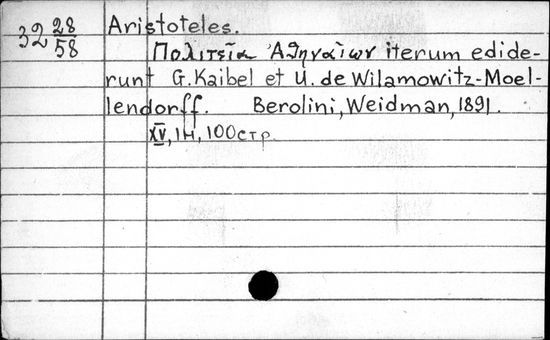 32 28/58
Aristoteles.
Πολιτεῖα Ἀθηναίων iterum edide-
runt G. Kaibel et U. de Wilamowitz-Moel-
lendorff. Berolini, Weidman, 1891.
XV, 1н, 100стр.